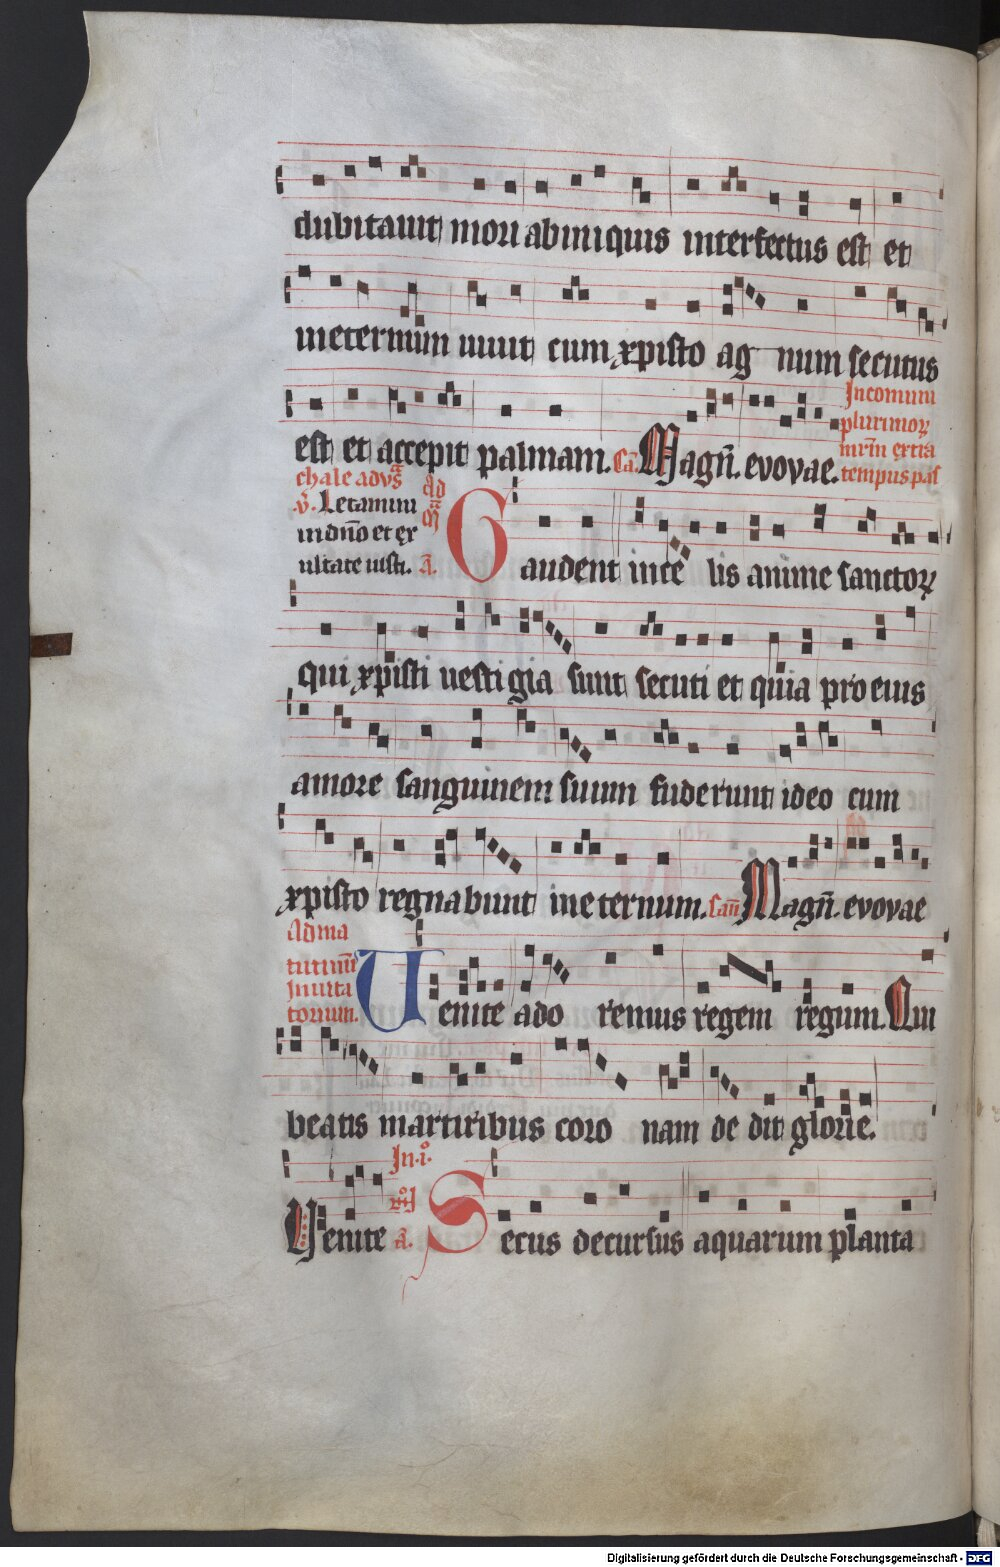 dubitauit mori abiniquis interfectus est et
ineternum uiuit cum xpisto ag num secutus
est et accepit palmam. Ca. Magn. evovae.
Incomuni
plurimoꝝ
mrm extra
tempus pas
chale advs
v. Letamini
in dno et ex
ultate iusti.
Ad
A.
Gaudent in ce lis anime sanctoꝝ
qui xpisti uestigia sunt secuti et quia pro eius
amore sanguinem suum fuderunt ideo cum
xpisto regnabunt ineternum. Magn. evovae
Ad ma
tutinum
Inuita
torium.
Uenite ado remus regem regum. Qui
beatis martiribus coro nam de dit glorie.
Venite
In .i.
a.
Secus decursus aquarum planta
Digitalisierung gefördert durch die Deutsche Forschungsgemeinschaft - DFG